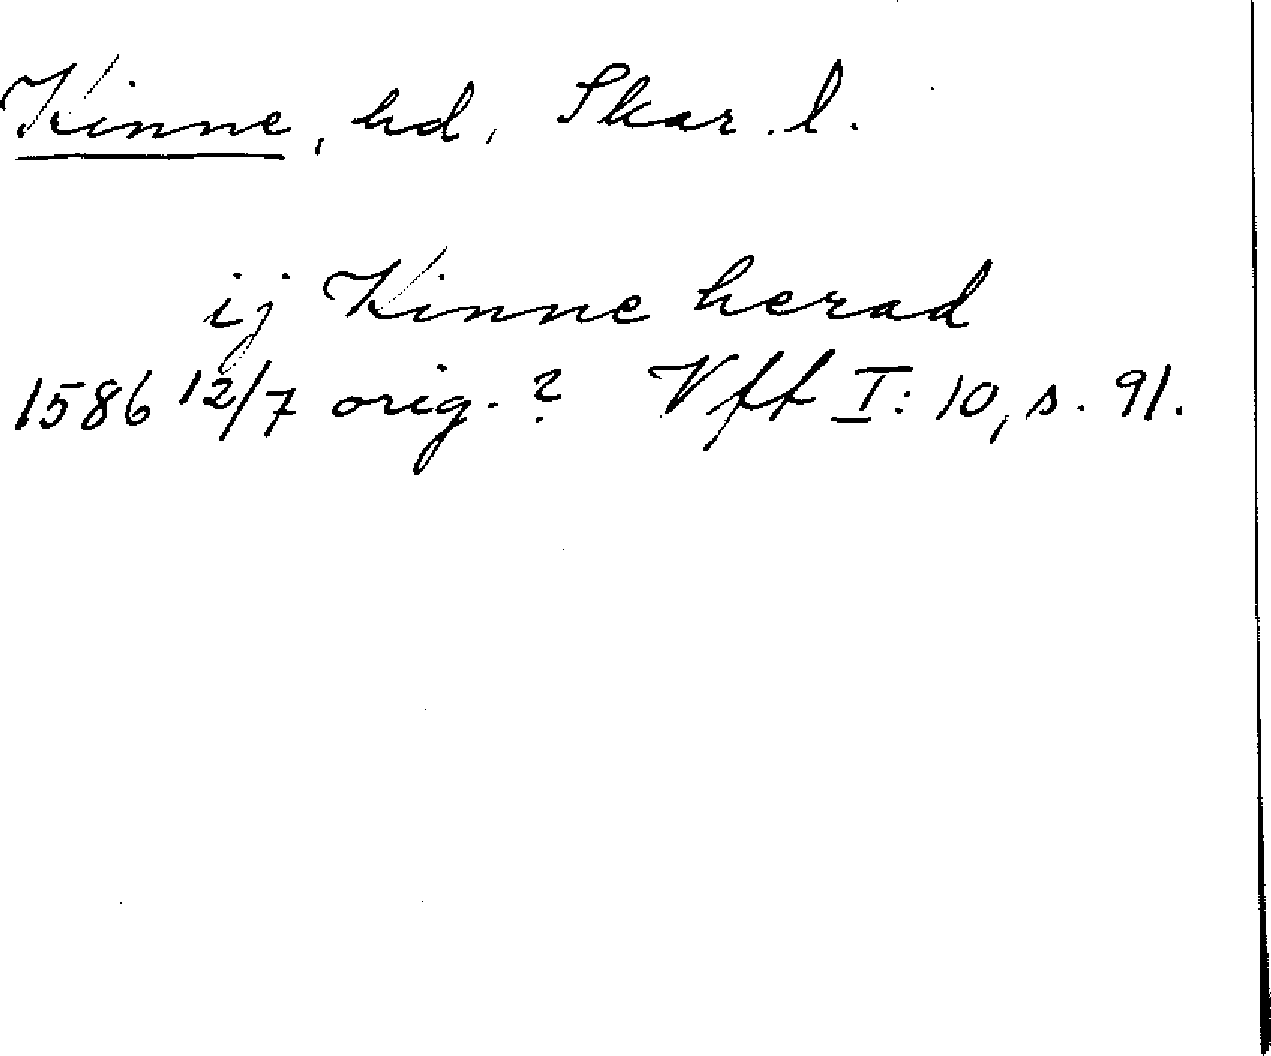 Kinne, hd, Skar. l.
ij Kinne herad
1586 12/7 orig. ? Vff I: 10, s. 91.